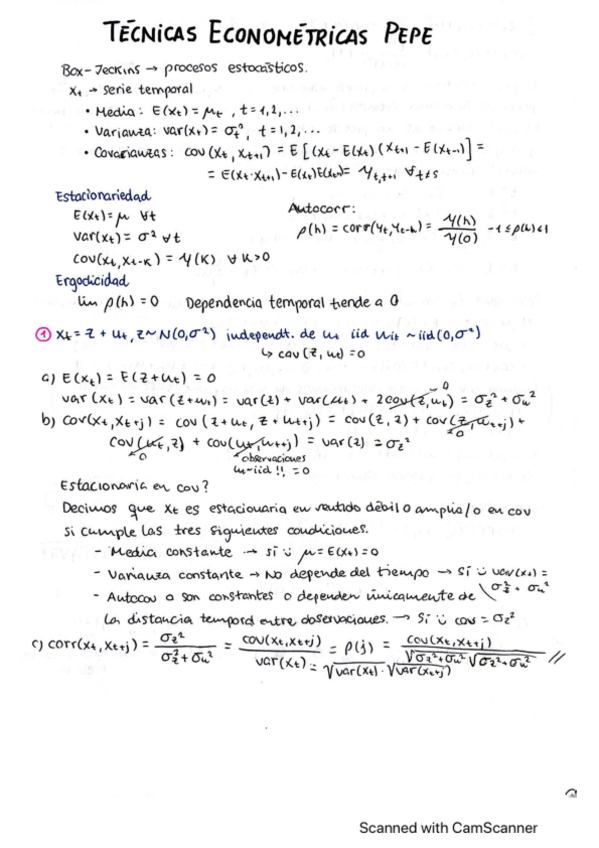 TÉCNICAS ECONOMÉTRICAS PEPE
Box-Jeckins → procesos estocásticos.
xt → serie temporal
• Media: E(xt) = μt , t=1,2,...
• Varianza: var(xt) = σt², t=1,2,...
• Covarianzas: cov(xt, xt+1) = E[(xt - E(xt)(xt+1 - E(xt-1)] =
= E(xt·xt+1) - E(xt)E(xt) = γt,t+1 ∀t≠s
Estacionariedad
E(xt) = μ ∀t
var(xt) = σ² ∀t
cov(xt, xt-k) = γ(k) ∀ k>0
Autocorr:
ρ(h) = corr(yt, yt-h) = γ(h)/γ(0) -1≤ρ(h)≤1
Ergodicidad
lim ρ(h) = 0 Dependencia temporal tiende a 0
① xt = z + ut, z~N(0,σ²) independt. de ut iid uit ~iid(0,σ²)
↳ cov(z, ut) = 0
a) E(xt) = E(z+ut) = 0
var(xt) = var(z+ut) = var(z) + var(ut) + 2cov(z,ut) → 0 = σz² + σu²
b) cov(xt, xt+j) = cov(z+ut, z+ut+j) = cov(z,z) + cov(z, ut+j) → 0 +
cov(ut, z) → 0 + cov(ut, ut+j) = var(z) = σz²
observaciones
u~iid !!, = 0
Estacionaria en cov?
Decimos que xt es estacionaria en sentido débil o amplia/o en cov
si cumple las tres siguientes condiciones.
- Media constante → sí ü μ = E(xt) = 0
- Varianza constante → No depende del tiempo → sí ü var(xt) = σz² + σu²
- Autocov o son constantes o dependen únicamente de
la distancia temporal entre observaciones. → Sí ü cov = σz²
c) corr(xt, xt+j) = σz²/(σz²+σu²) = cov(xt,xt+j)/var(xt) = √var(xt)·√var(xt+j) = ρ(j) = cov(xt,xt+j)/(√σz²+σu² √σz²+σu²) //
Scanned with CamScanner